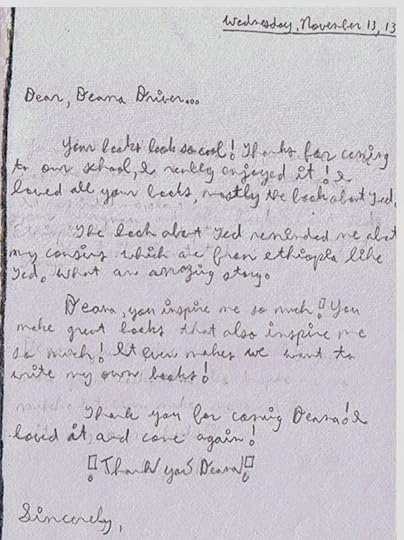 Wednesday, November 13, 13
Dear, Deana Driver...
Your books look so cool! Thanks for coming
to our school, I really enjoyed it! I
loved all your books, mostly the book about Ted.
The book about Ted reminded me about
my cousins which are from ethiopia like
Ted. What an amazing story.
Deana, you inspire me so much! You
make great books that also inspire me
so much! It even makes me want to
write my own books!
Thank you for coming Deana! I
loved it and come again!
!Thank you Deana!
Sincerely,